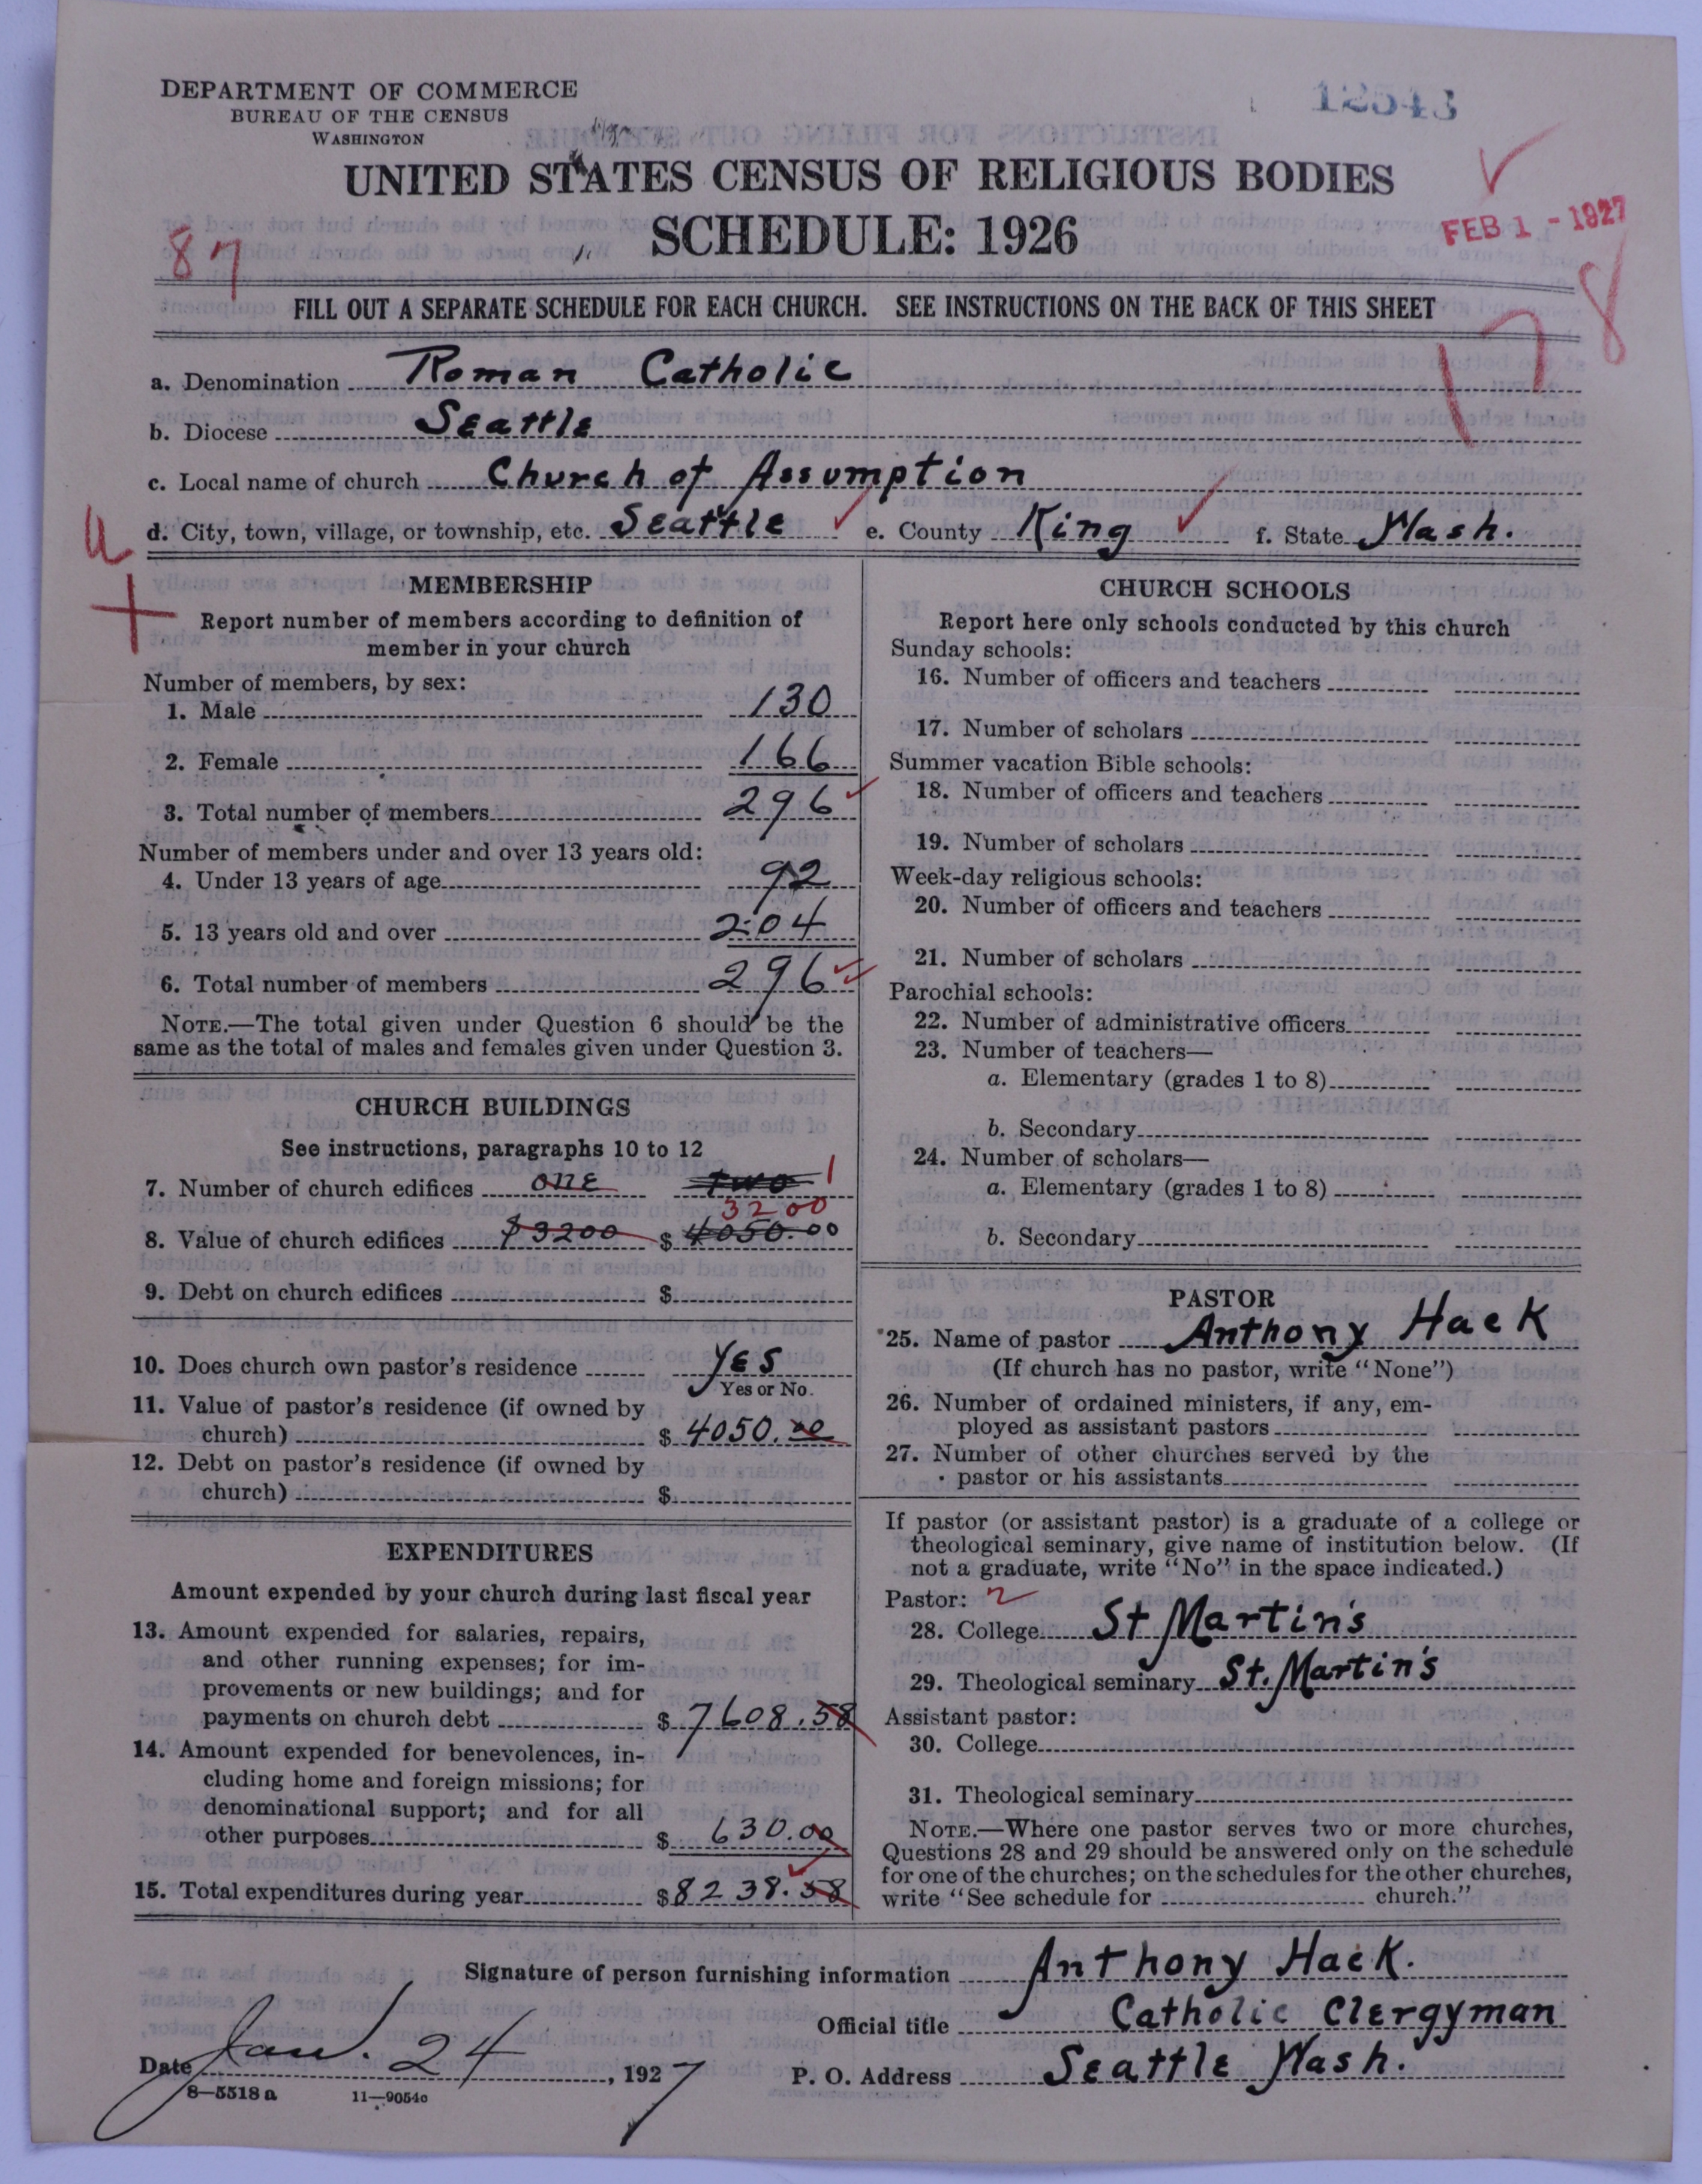 DEPARTMENT OF COMMERCE
BUREAU OF THE CENSUS
WASHINGTON
12543
UNITED STATES CENSUS OF RELIGIOUS BODIES
SCHEDULE: 1926
FEB 1 - 1927
87
178
FILL OUT A SEPARATE SCHEDULE FOR EACH CHURCH. SEE INSTRUCTIONS ON THE BACK OF THIS SHEET
a. Denomination Roman Catholic
b. Diocese Seattle
c. Local name of church Church of Assumption
d. City, town, village, or township, etc. Seattle e. County King f. State Wash.
MEMBERSHIP
Report number of members according to definition of
member in your church
Number of members, by sex:
1. Male 130
2. Female 166
3. Total number of members 296
Number of members under and over 13 years old:
4. Under 13 years of age 92
5. 13 years old and over 204
6. Total number of members 296
NOTE.—The total given under Question 6 should be the
same as the total of males and females given under Question 3.
CHURCH BUILDINGS
See instructions, paragraphs 10 to 12
7. Number of church edifices one two 1
3200
8. Value of church edifices $3200 $ 4050.00
9. Debt on church edifices $
10. Does church own pastor's residence Yes
Yes or No.
11. Value of pastor's residence (if owned by
church) $ 4050.00
12. Debt on pastor's residence (if owned by
church) $
EXPENDITURES
Amount expended by your church during last fiscal year
13. Amount expended for salaries, repairs,
and other running expenses; for im-
provements or new buildings; and for
payments on church debt $ 7608.58
14. Amount expended for benevolences, in-
cluding home and foreign missions; for
denominational support; and for all
other purposes $ 630.00
15. Total expenditures during year $ 8238.58
CHURCH SCHOOLS
Report here only schools conducted by this church
Sunday schools:
16. Number of officers and teachers
17. Number of scholars
Summer vacation Bible schools:
18. Number of officers and teachers
19. Number of scholars
Week-day religious schools:
20. Number of officers and teachers
21. Number of scholars
Parochial schools:
22. Number of administrative officers
23. Number of teachers—
a. Elementary (grades 1 to 8)
b. Secondary
24. Number of scholars—
a. Elementary (grades 1 to 8)
b. Secondary
PASTOR
25. Name of pastor Anthony Hack
(If church has no pastor, write "None")
26. Number of ordained ministers, if any, em-
ployed as assistant pastors
27. Number of other churches served by the
pastor or his assistants
If pastor (or assistant pastor) is a graduate of a college or
theological seminary, give name of institution below. (If
not a graduate, write "No" in the space indicated.)
Pastor: 2
28. College St Martin's
29. Theological seminary St. Martin's
Assistant pastor:
30. College
31. Theological seminary
NOTE.—Where one pastor serves two or more churches,
Questions 28 and 29 should be answered only on the schedule
for one of the churches; on the schedules for the other churches,
write "See schedule for church."
Signature of person furnishing information Anthony Hack.
Official title Catholic Clergyman
Date Jan. 24, 1927 P. O. Address Seattle Wash.
8—5518a 11—9054c